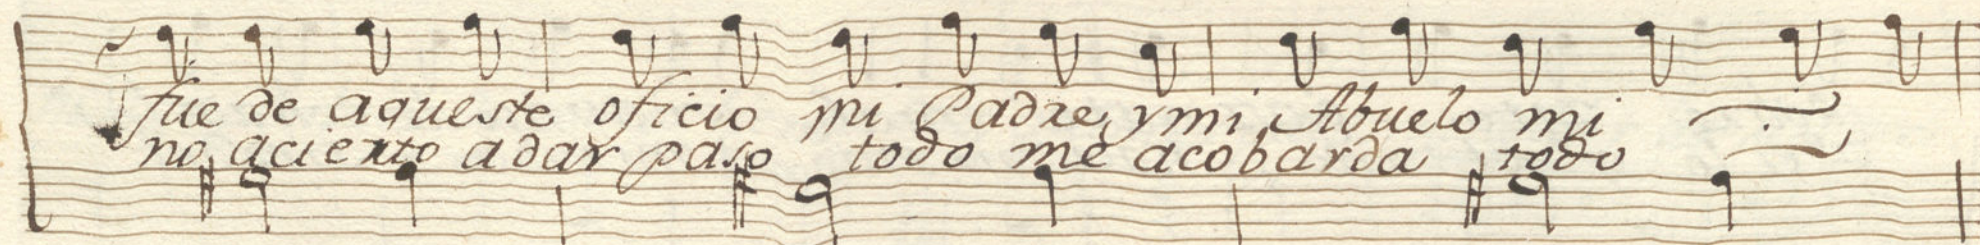 fue de aqueste oficio mi Padre, y mi Abuelo mi
no acierto a dar paso todo me acobarda todo